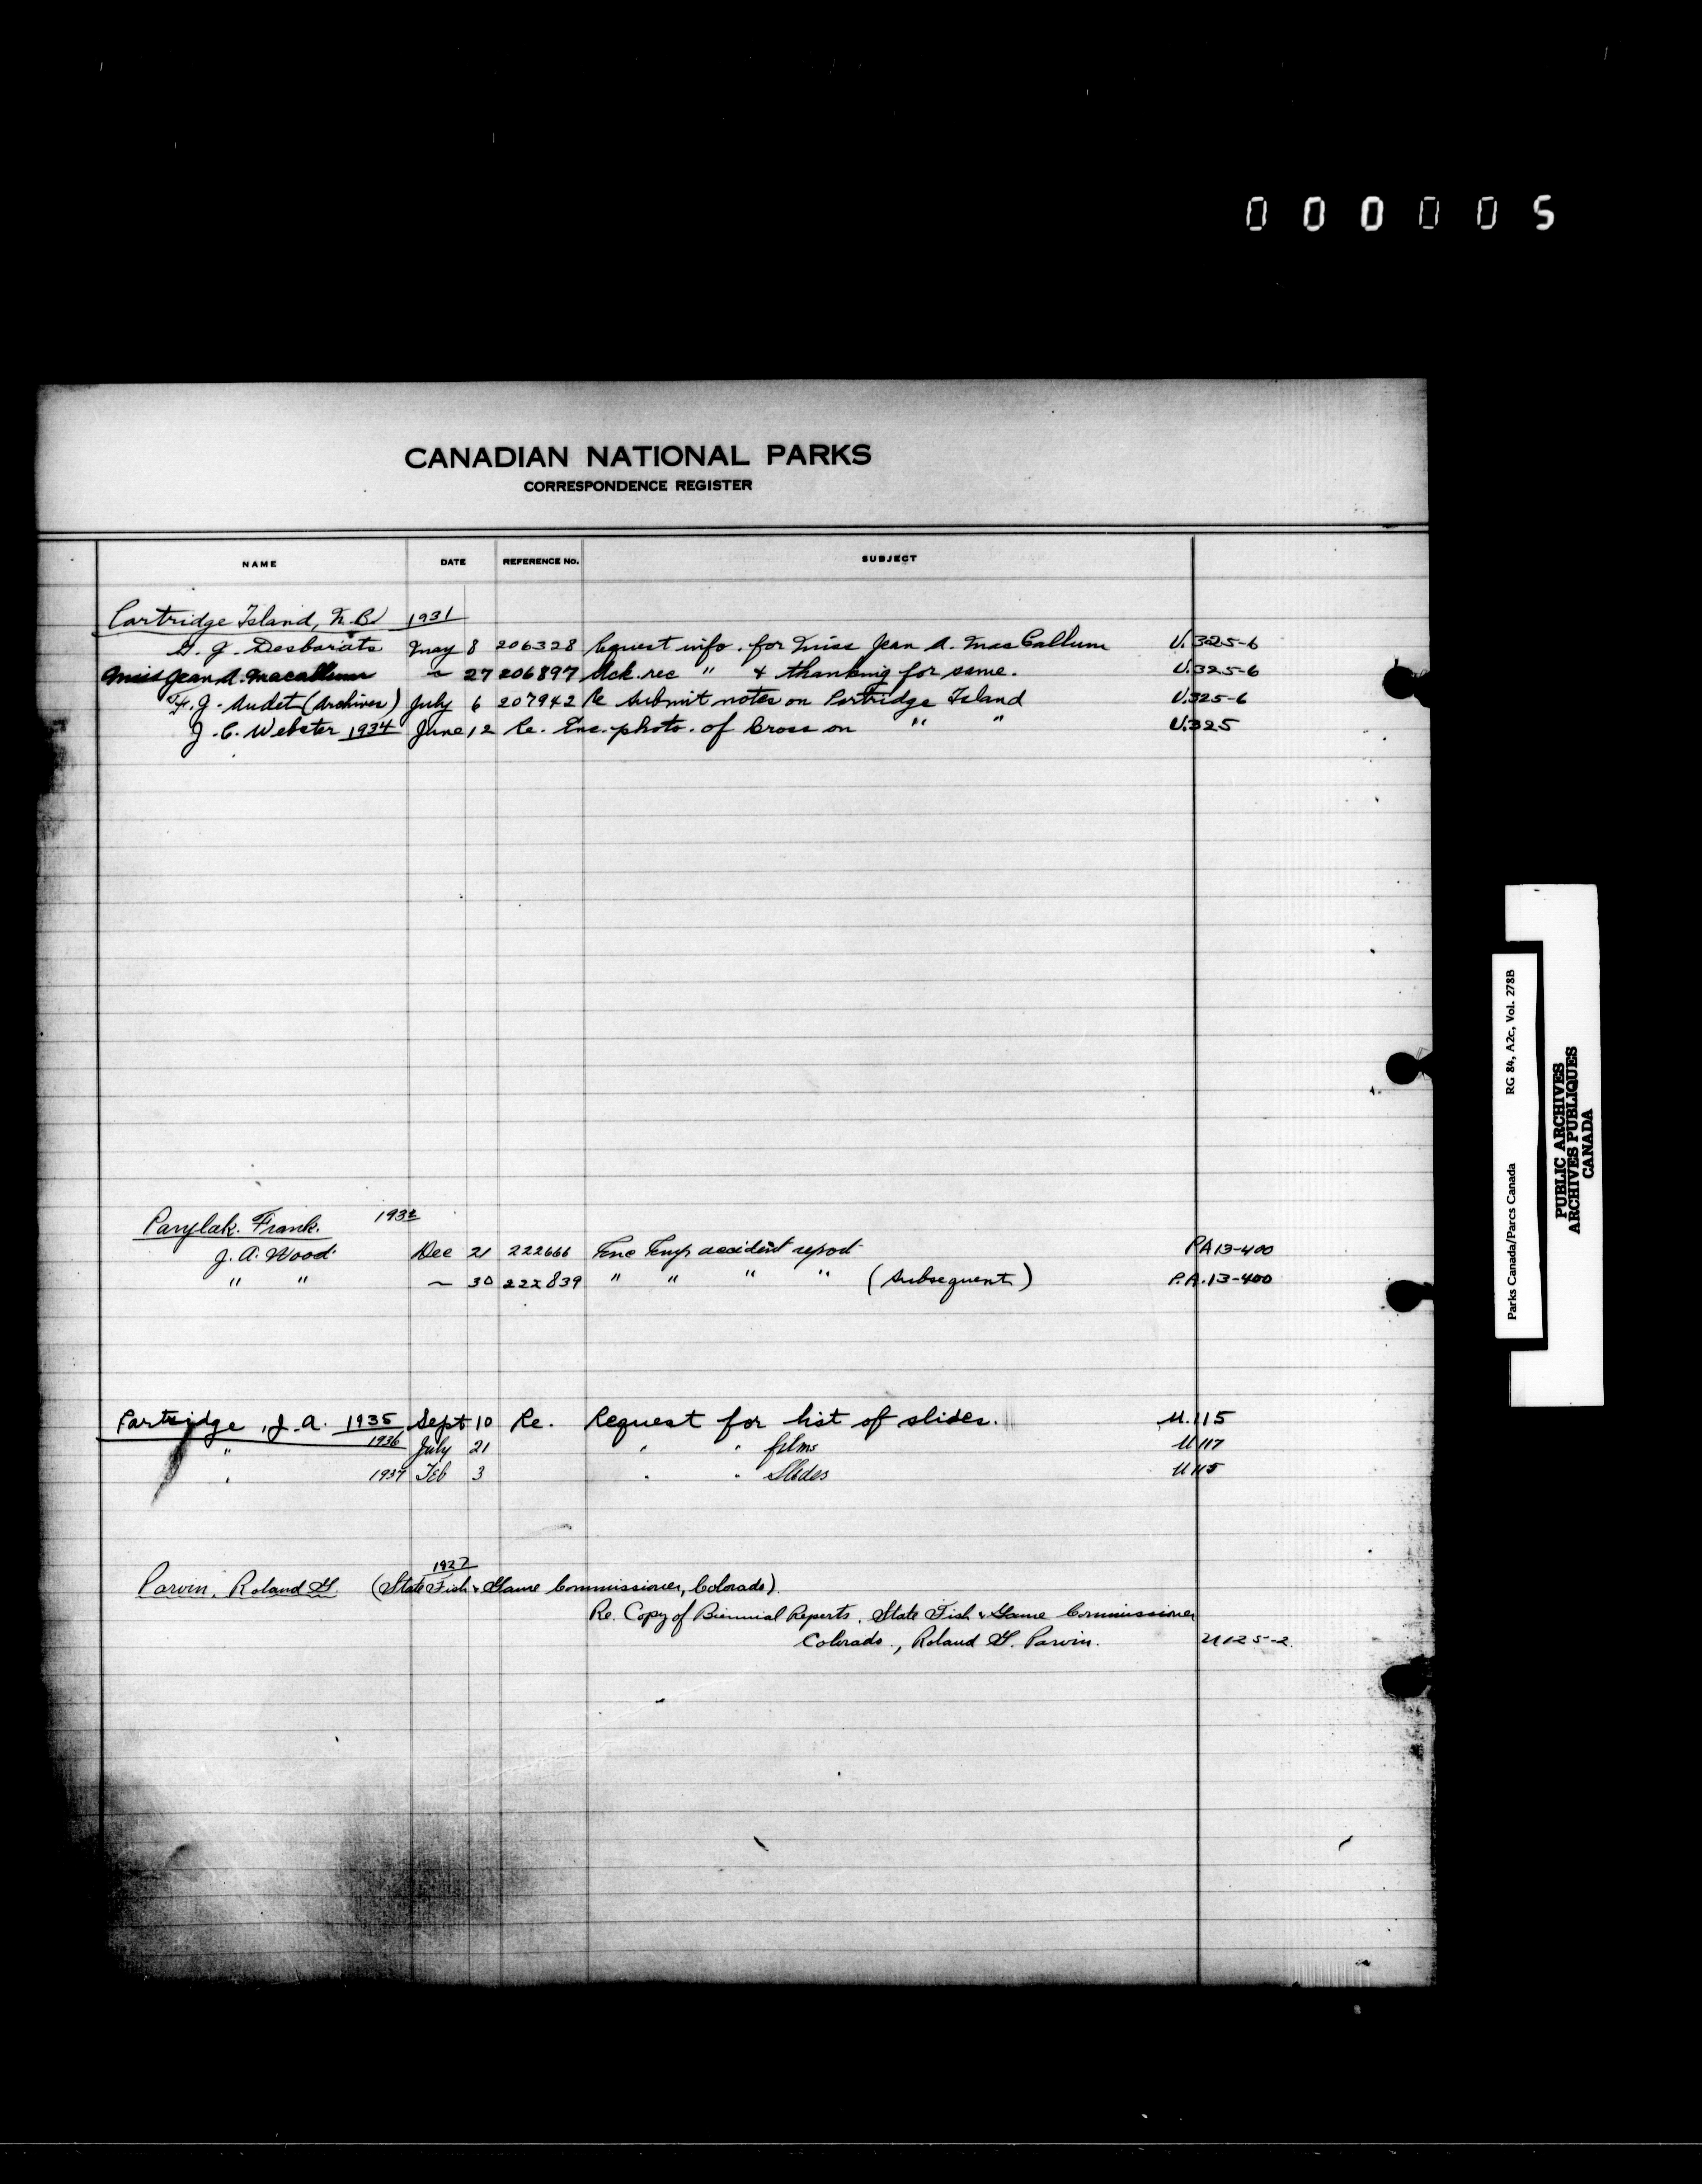 000005
CANADIAN NATIONAL PARKS
CORRESPONDENCE REGISTER
NAME DATE REFERENCE No. SUBJECT
Partridge Island, N.B. 1931
G. J. Desbarats May 8 206328 Request info. for Miss Jean A. MacCallum U.325-6
Miss Jean A. Macallum " 27 206897 Ack. rec " & thanking for same. U.325-6
F. J. Audet (Archives) July 6 207942 Re Submit notes on Partridge Island U.325-6
J. C. Webster 1934 June 12 Re. Enc. photo. of Cross on " " U.325
Parylak. Frank. 1932
J. A. Wood. Dec 21 222666 Enc Emp accident report PA13-400
" " " 30 222839 " " " " (Subsequent) P.A.13-400
Partridge, J. A. 1935 Sept 10 Re. Request for list of slides. U.115
" 1936 July 21 " " films U117
" 1937 Feb 3 " " Slides U115
1937
Parvin, Roland G. (State Fish & Game Commissioner, Colorado).
Re. Copy of Biennial Reports, State Fish & Game Commissioner
Colorado., Roland G. Parvin. U125-2.
Parks Canada/Parcs Canada RG 84, A2c, Vol. 278B
PUBLIC ARCHIVES
ARCHIVES PUBLIQUES
CANADA